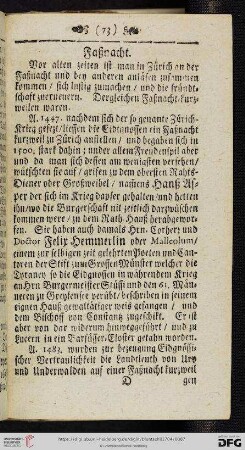 (73)
Faßnacht.
Vor alten zeiten ist man in Zürich an der
Faßnacht und bey anderen anläsen zusammen
kommen / sich lustig zumachen / und die fründt-
schaft zuerneuern. Dergleichen Faßnacht-kurz-
weilen waren.
A. 1447. nachdem sich der so genante Zürich-
Krieg gesezt / liessen die Eidtgnossen ein Faßnacht
kurzweil zu Zürich anstellen / und begaben sich in
1500. stark dahin; under allem Freudenspil aber
und da man sich dessen am wenigsten versehen /
wütschten sie auf / griffen zu dem obersten Rahts-
Diener oder Großweibel / namens Hanß As-
per der sich im Krieg dapfer gehalten / und hetten
ihn / wo die Burgerschaft nit zeitlich darzwüschen
kommen were / zu dem Raht-Hauß herabgewor-
fen. Sie haben auch damals Hrn. Corherr und
Doctor Felix Hemmerlin oder Malleolum /
einen zur selbigen zeit gelehrten Poeten und Can-
toren der Stift zum Grossen Münster welcher die
Tyraney so die Eidgnossen in währendem Krieg
an Hrn Burgermeister Stüssi und den 61. Män-
neren zu Greyfensee verübt / beschriben in seinem
eignen Hauß gewaltthätiger weis gefangen / und
dem Bischoff von Constanz zugeschikt. Er ist
aber von dar widerum hinweggeführt / und zu
Lucern in ein Barfüsser-Closter gethan worden.
A. 1483. wurden zur bezeugung Eidgnößi-
scher Vertraulichkeit die Landtleuth von Ury
und Underwalden auf einer Faßnacht kurzweil
D gen